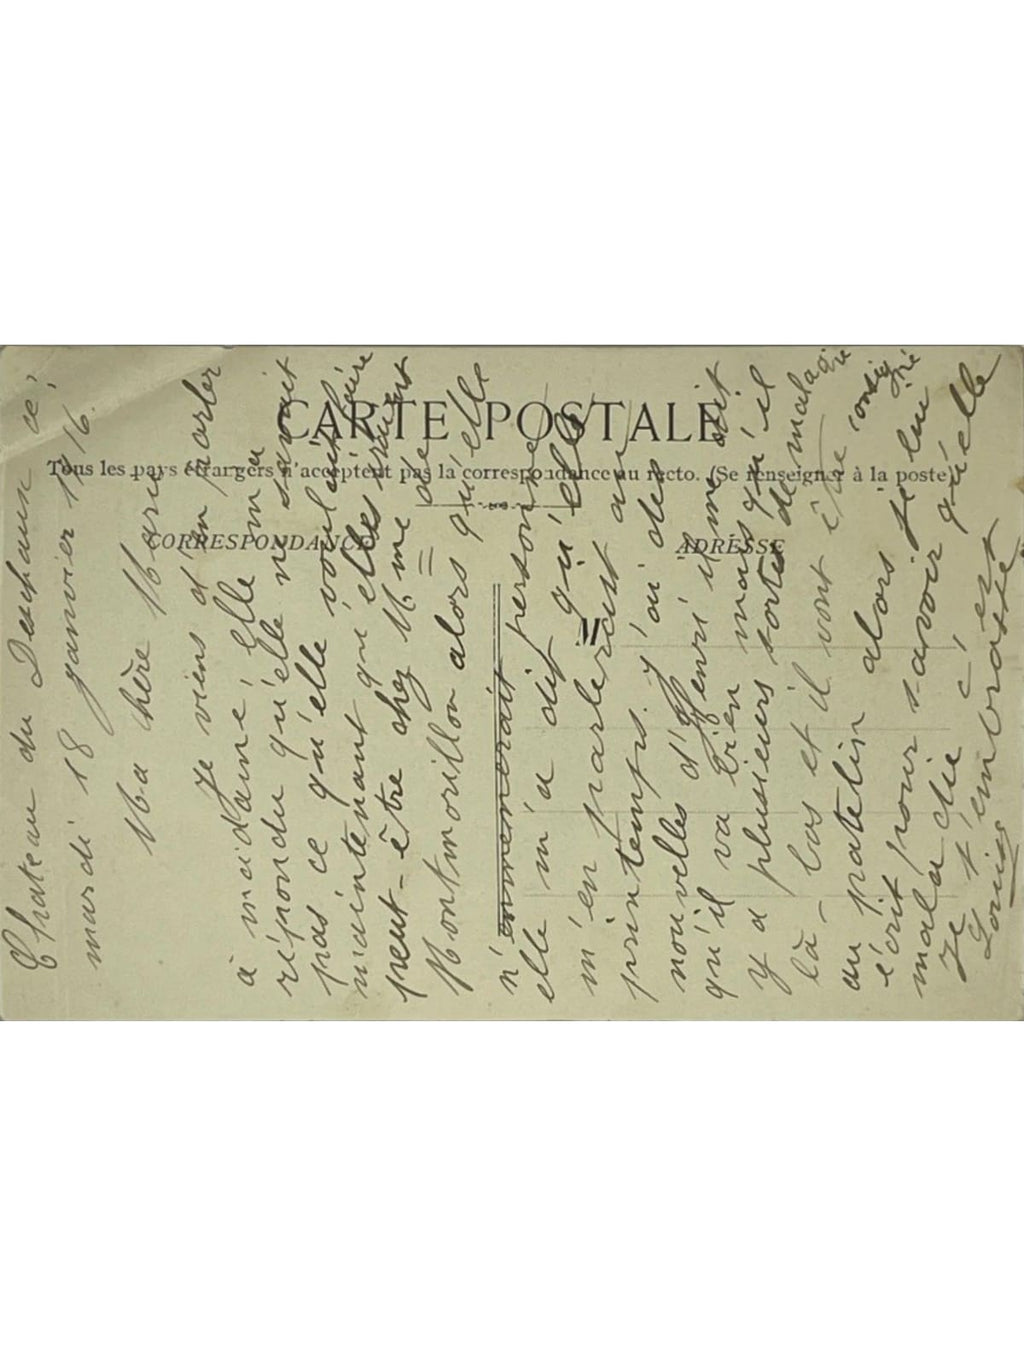 CARTE POSTALE
Tous les pays étrangers n'acceptent pas la correspondance au recto. (Se renseigner à la poste)
CORRESPONDANCE
ADRESSE
M
Chateau du Deschaux ce
mardi 18 janvier 1916.
Ma chère Marie
Je viens d'en parler
à madame, Elle m'a
répondu qu'elle ne savait
pas ce qu'elle voulait faire
maintenant qu'elles iraient
peut-être chez Mme de
Montmorillon alors qu'elle
n'emmenerait personne
elle m'a dit qu'elle
m'en parlerait au
printemps. J'ai des
nouvelles d'Henri il me dit
qu'il va bien mais qu'il
y a plusieurs sortes de maladie
là-bas et il vont être consigné
au patelin alors je lui
écrit pour savoir qu'elle
maladie c'est
Je t'embrasse
Louis